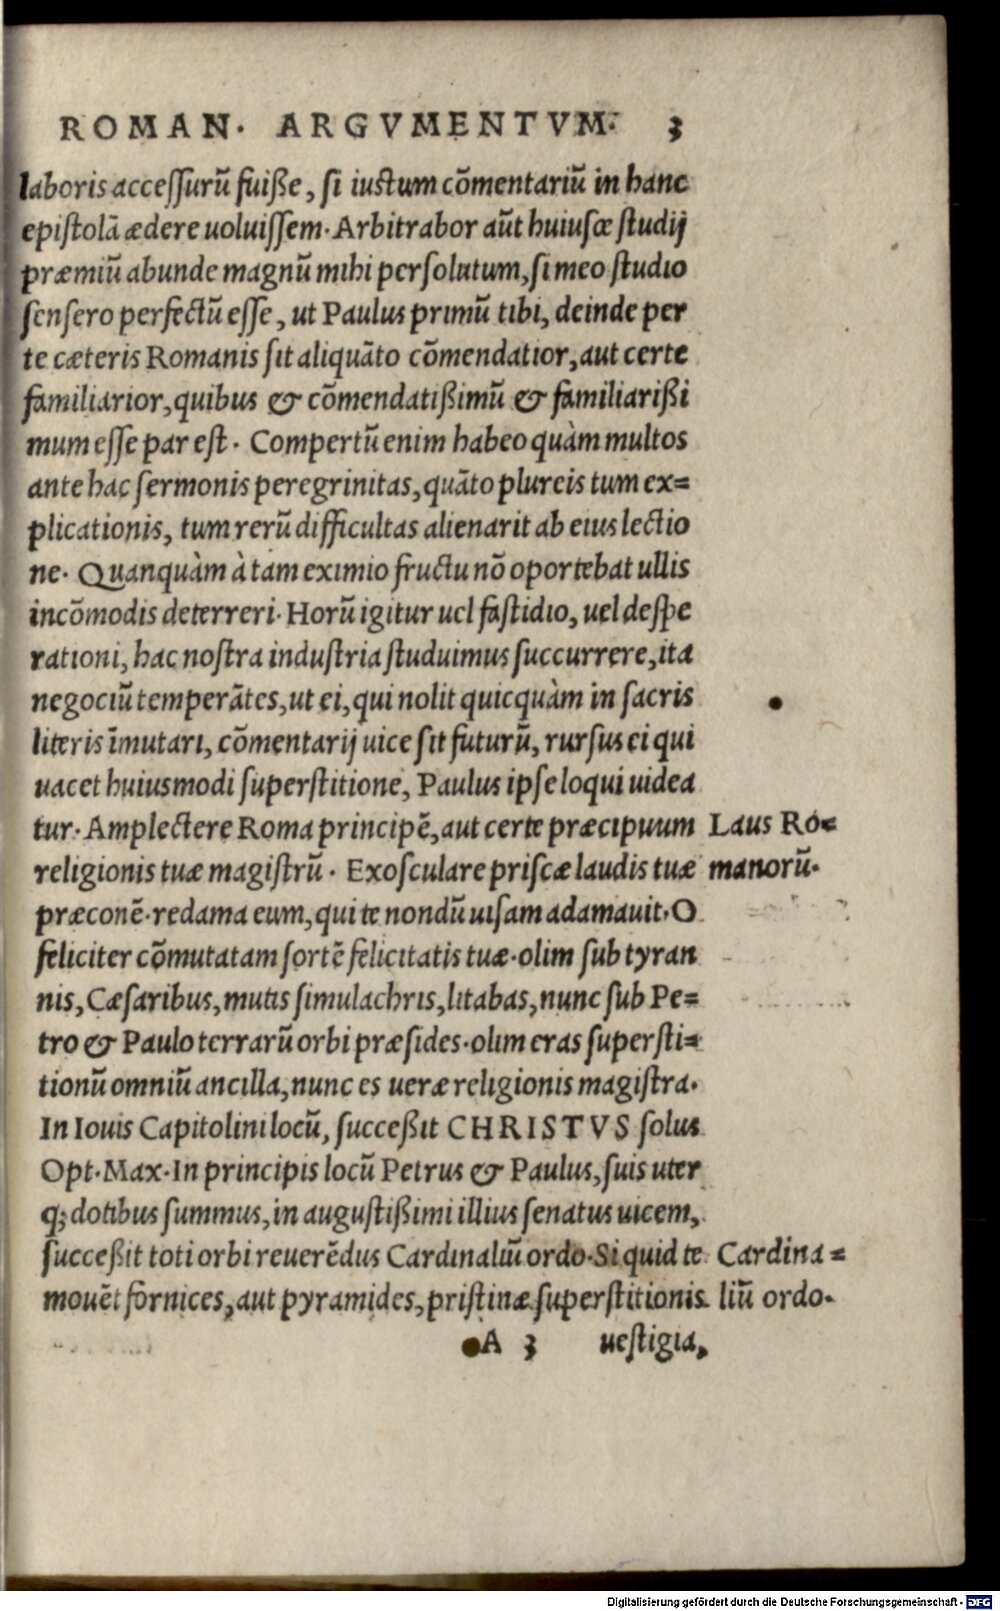 ROMAN. ARGVMENTVM. 3
laboris accessurũ fuiße, si iustum cõmentariũ in hanc
epistolã ædere uoluissem. Arbitrabor aũt huiusce studij
præmiũ abunde magnũ mihi persolutum, si meo studio
sensero perfectũ esse, ut Paulus primũ tibi, deinde per
te cæteris Romanis sit aliquãto cõmendatior, aut certe
familiarior, quibus & cõmendatißimũ & familiarißi
mum esse par est. Compertũ enim habeo quàm multos
ante hac sermonis peregrinitas, quãto plureis tum ex=
plicationis, tum rerũ difficultas alienarit ab eius lectio
ne. Quanquàm à tam eximio fructu nõ oportebat ullis
incõmodis deterreri. Horũ igitur uel fastidio, uel despe
rationi, hac nostra industria studuimus succurrere, ita
negociũ temperãtes, ut ei, qui nolit quicquàm in sacris
literis ĩmutari, cõmentarij uice sit futurũ, rursus ei qui
uacet huiusmodi superstitione, Paulus ipse loqui uidea
tur. Amplectere Roma principẽ, aut certe præcipuum
Laus Ro=
religionis tuæ magistrũ. Exosculare priscæ laudis tuæ
manorũ.
præconẽ. redama eum, qui te nondũ uisam adamauit. O
feliciter cõmutatam sortẽ felicitatis tuæ. olim sub tyran
nis, Cæsaribus, mutis simulachris, litabas, nunc sub Pe=
tro & Paulo terrarũ orbi præsides. olim eras supersti=
tionũ omniũ ancilla, nunc es ueræ religionis magistra.
In Iouis Capitolini locũ, succeßit CHRISTVS solus
Opt. Max. In principis locũ Petrus & Paulus, suis uter
q; dotibus summus, in augustißimi illius senatus uicem,
succeßit toti orbi reuerẽdus Cardinaliũ ordo. Si quid te
Cardina=
mouẽt fornices, aut pyramides, pristinæ superstitionis
liũ ordo.
A 3 uestigia,
Digitalisierung gefördert durch die Deutsche Forschungsgemeinschaft - DFG